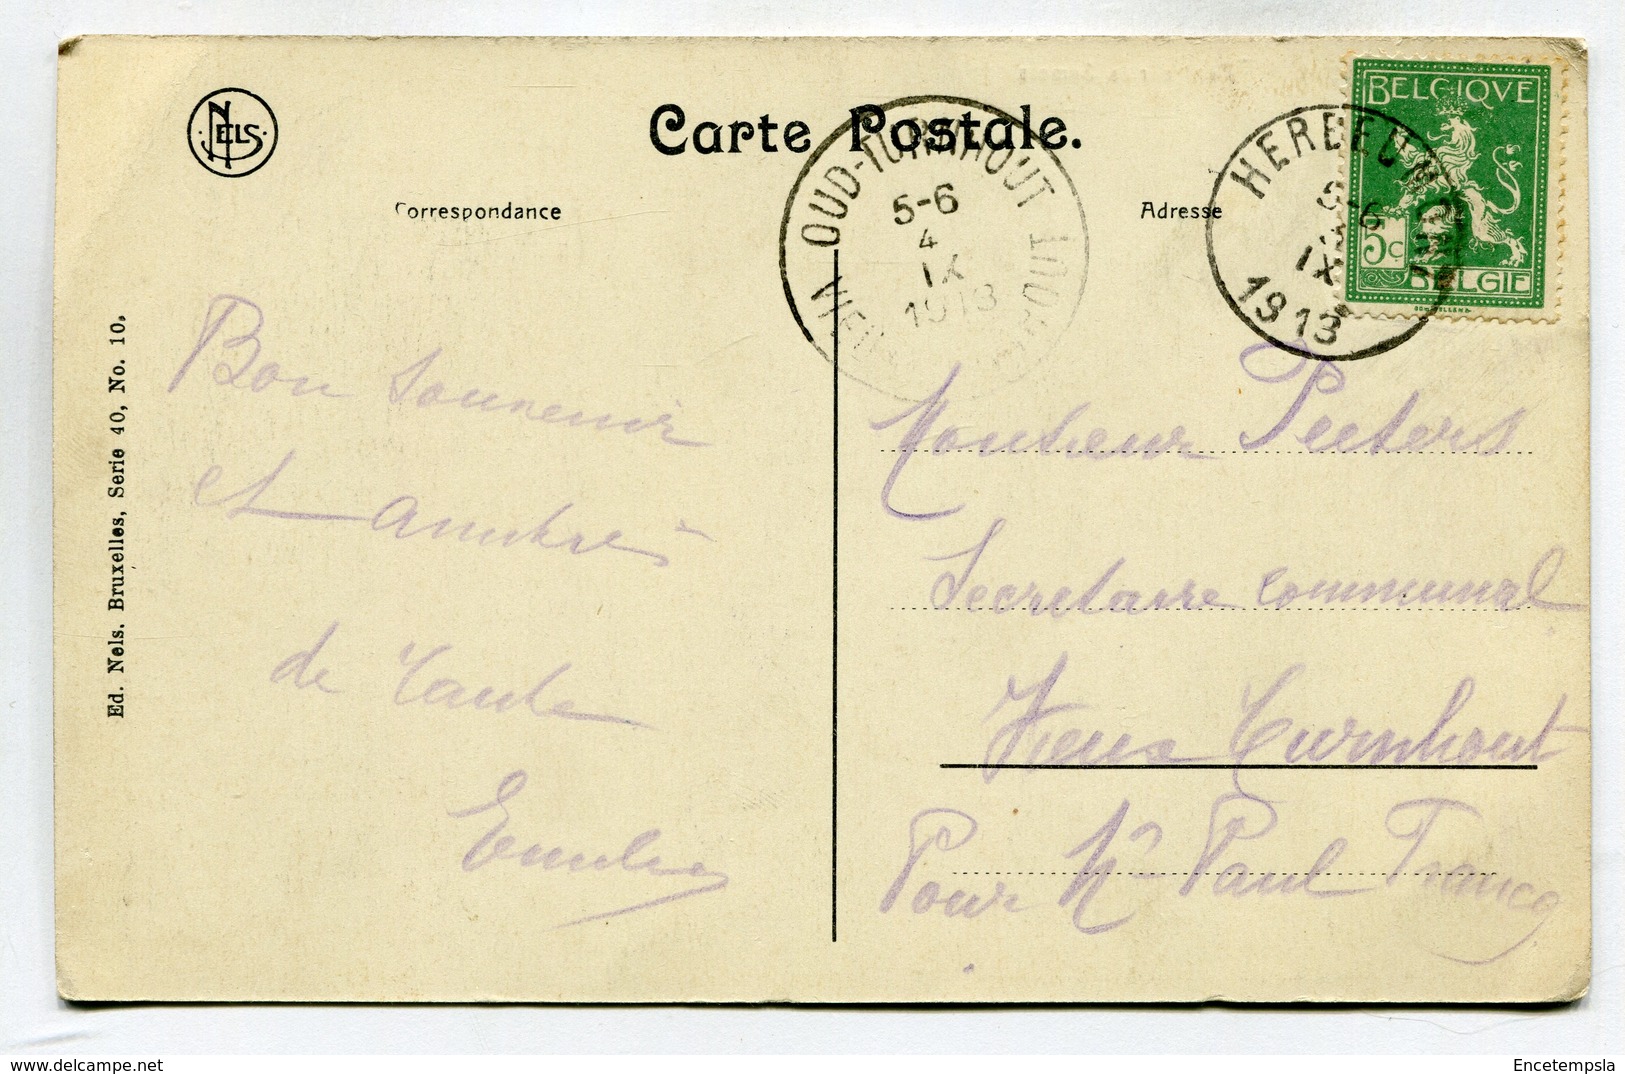 NELS
Carte Postale.
Correspondance
Adresse
OUD-TURNHOUT
5-6
4
IX
1913
VIEUX-TURNHOUT
HERBEUMONT
8-6
IX
1913
BELGIQVE
5c
BELGIE
Ed. Nels. Bruxelles, Serie 40, No. 10.
Bon souvenir
et amitiés
de Tante
Emilie
Monsieur Peeters
Secretaire communal
Vieux Turnhout
Pour Mr Paul Francq
Encetempsla